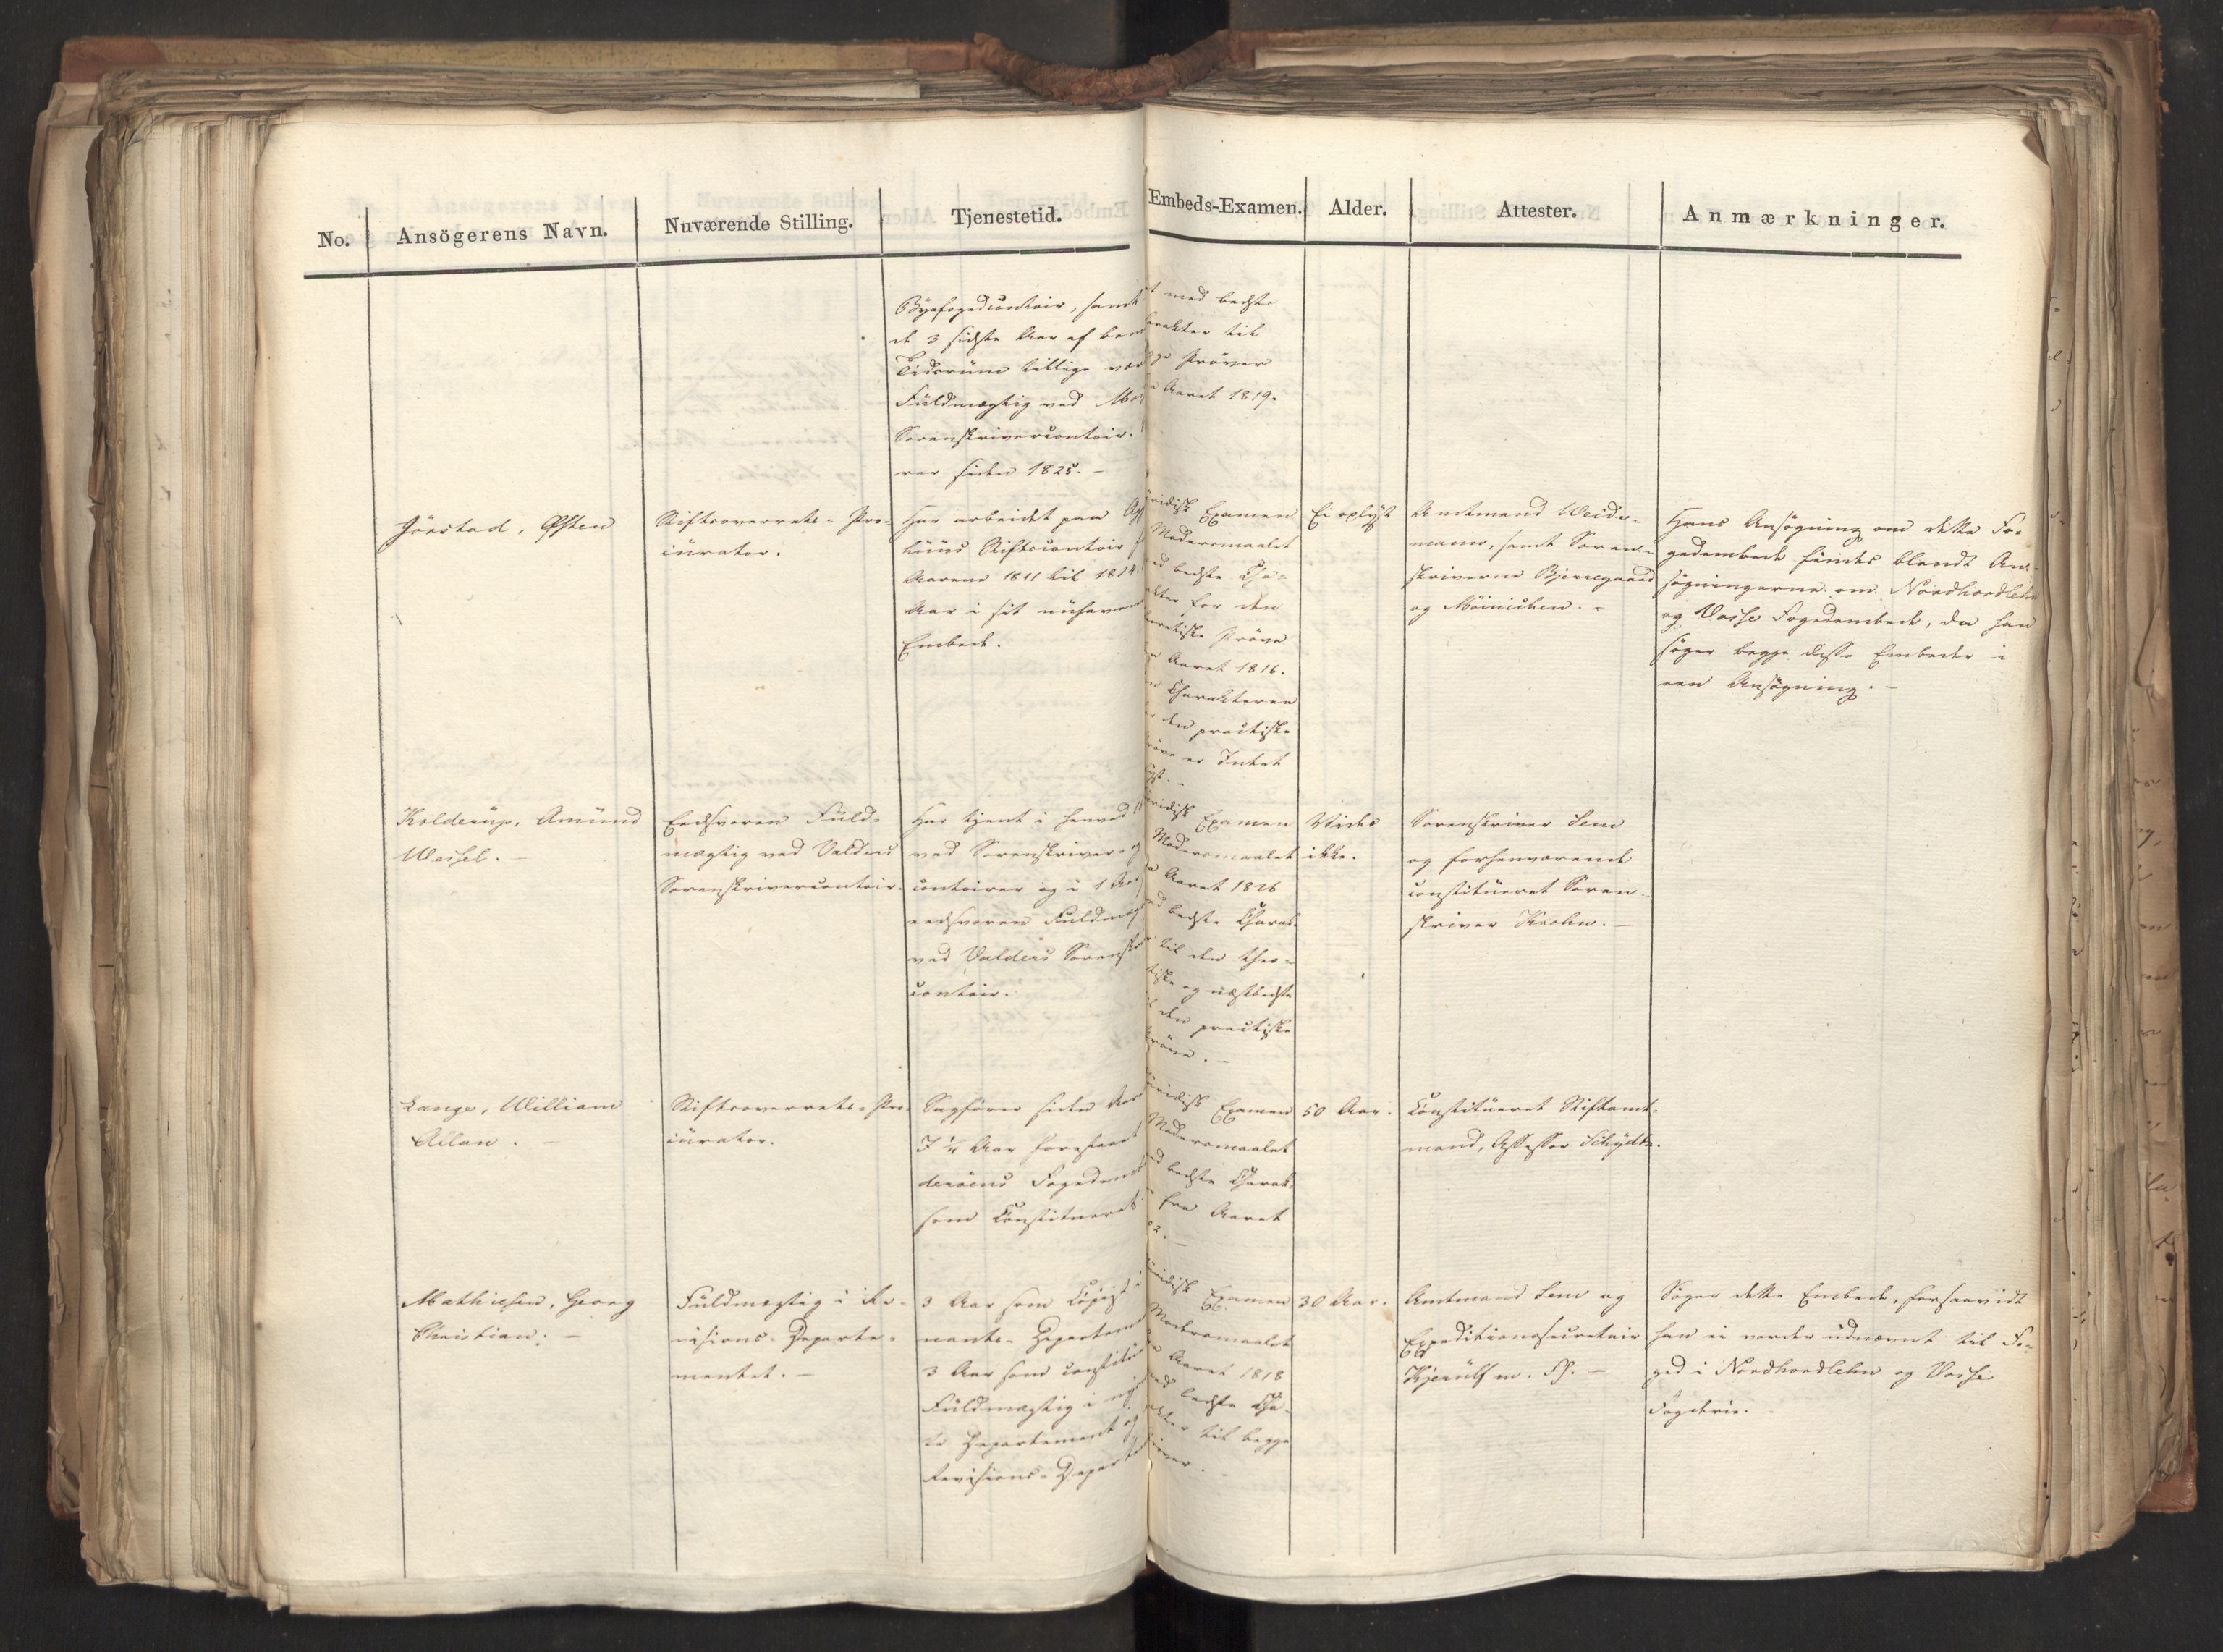 No.
Ansögerens Navn.
Nuværende Stilling.
Tjenestetid.
Embeds-Examen.
Alder.
Attester.
Anmærkninger.
Byefogedcontoir, samt
de 3 sidste Aar af
Tidsrum tillige
Fuldmægtig ved
Sorenskrivercontoir.
siden 1825. –
med bedste
til
Prøver
Aaret 1819.
Jönstad, Østen
Stiftsoverrets-Pro-
curator.
Har arbeidet paa
Stiftscontoir
Aarene 1811 til 1814.
Aar i sit nuhavende
Embede.
Examen
Modersmaalet
bedste Cha-
for den
Prøve
Aaret 1816.
Charakteren
den practiske
er Intet
Ei oplyst
Amtmand Weide-
mann, samt Soren-
skriverne Bjerregaard
og Möinichen. –
Hans Ansøgning om dette Fo-
gedembede findes blandt An-
søgningerne om Nordhordlehn
og Vosse Fogedembede, da han
søger begge disse Embeder i
een Ansøgning. –
Kolderup, Amund
Wessel. –
Eedsvoren Fuld-
mægtig ved Valders
Sorenskrivercontoir.
Har tjent i
ved Sorenskriver-
contoirer og i 1 Aar
eedsvoren Fuldmægt
ved Valders Sorenskr
contoir.
Examen
Modersmaalet
Aaret 1826
bedste Charak-
til den theo-
og næstbedste
den practiske
Vides
ikke.
Sorenskriver Lem
og forhenværende
constitueret Soren-
skriver Krohn. –
Lange, William
Allan. –
Stiftsoverrets-Pro-
curator.
Sagfører siden
I ½ Aar forestaaet
deröens Fogedem
som Constitueret
Examen
Modersmaalet
bedste Charak-
fra Aaret
50 Aar.
Constitueret Stiftamt-
mand, Assessor Schydtz.
Mathiesen, Georg
Christian. –
Fuldmægtig i Re-
visions-Departe-
mentet. –
3 Aar som Copist i
nants-Departeme
3 Aar som constitue
Fuldmægtig i
te Departement og
Revisions-Departe
Examen
Modersmaalet
Aaret 1818
bedste Cha-
til begge
30 Aar.
Amtmand Lem og
Expeditionssecretair
Kjerulf m. Fl. –
Søger dette Embede, forsaavidt
han ei vorder udnævnt til Fo-
ged i Nordhordlehn og Vosse
Fogderie.